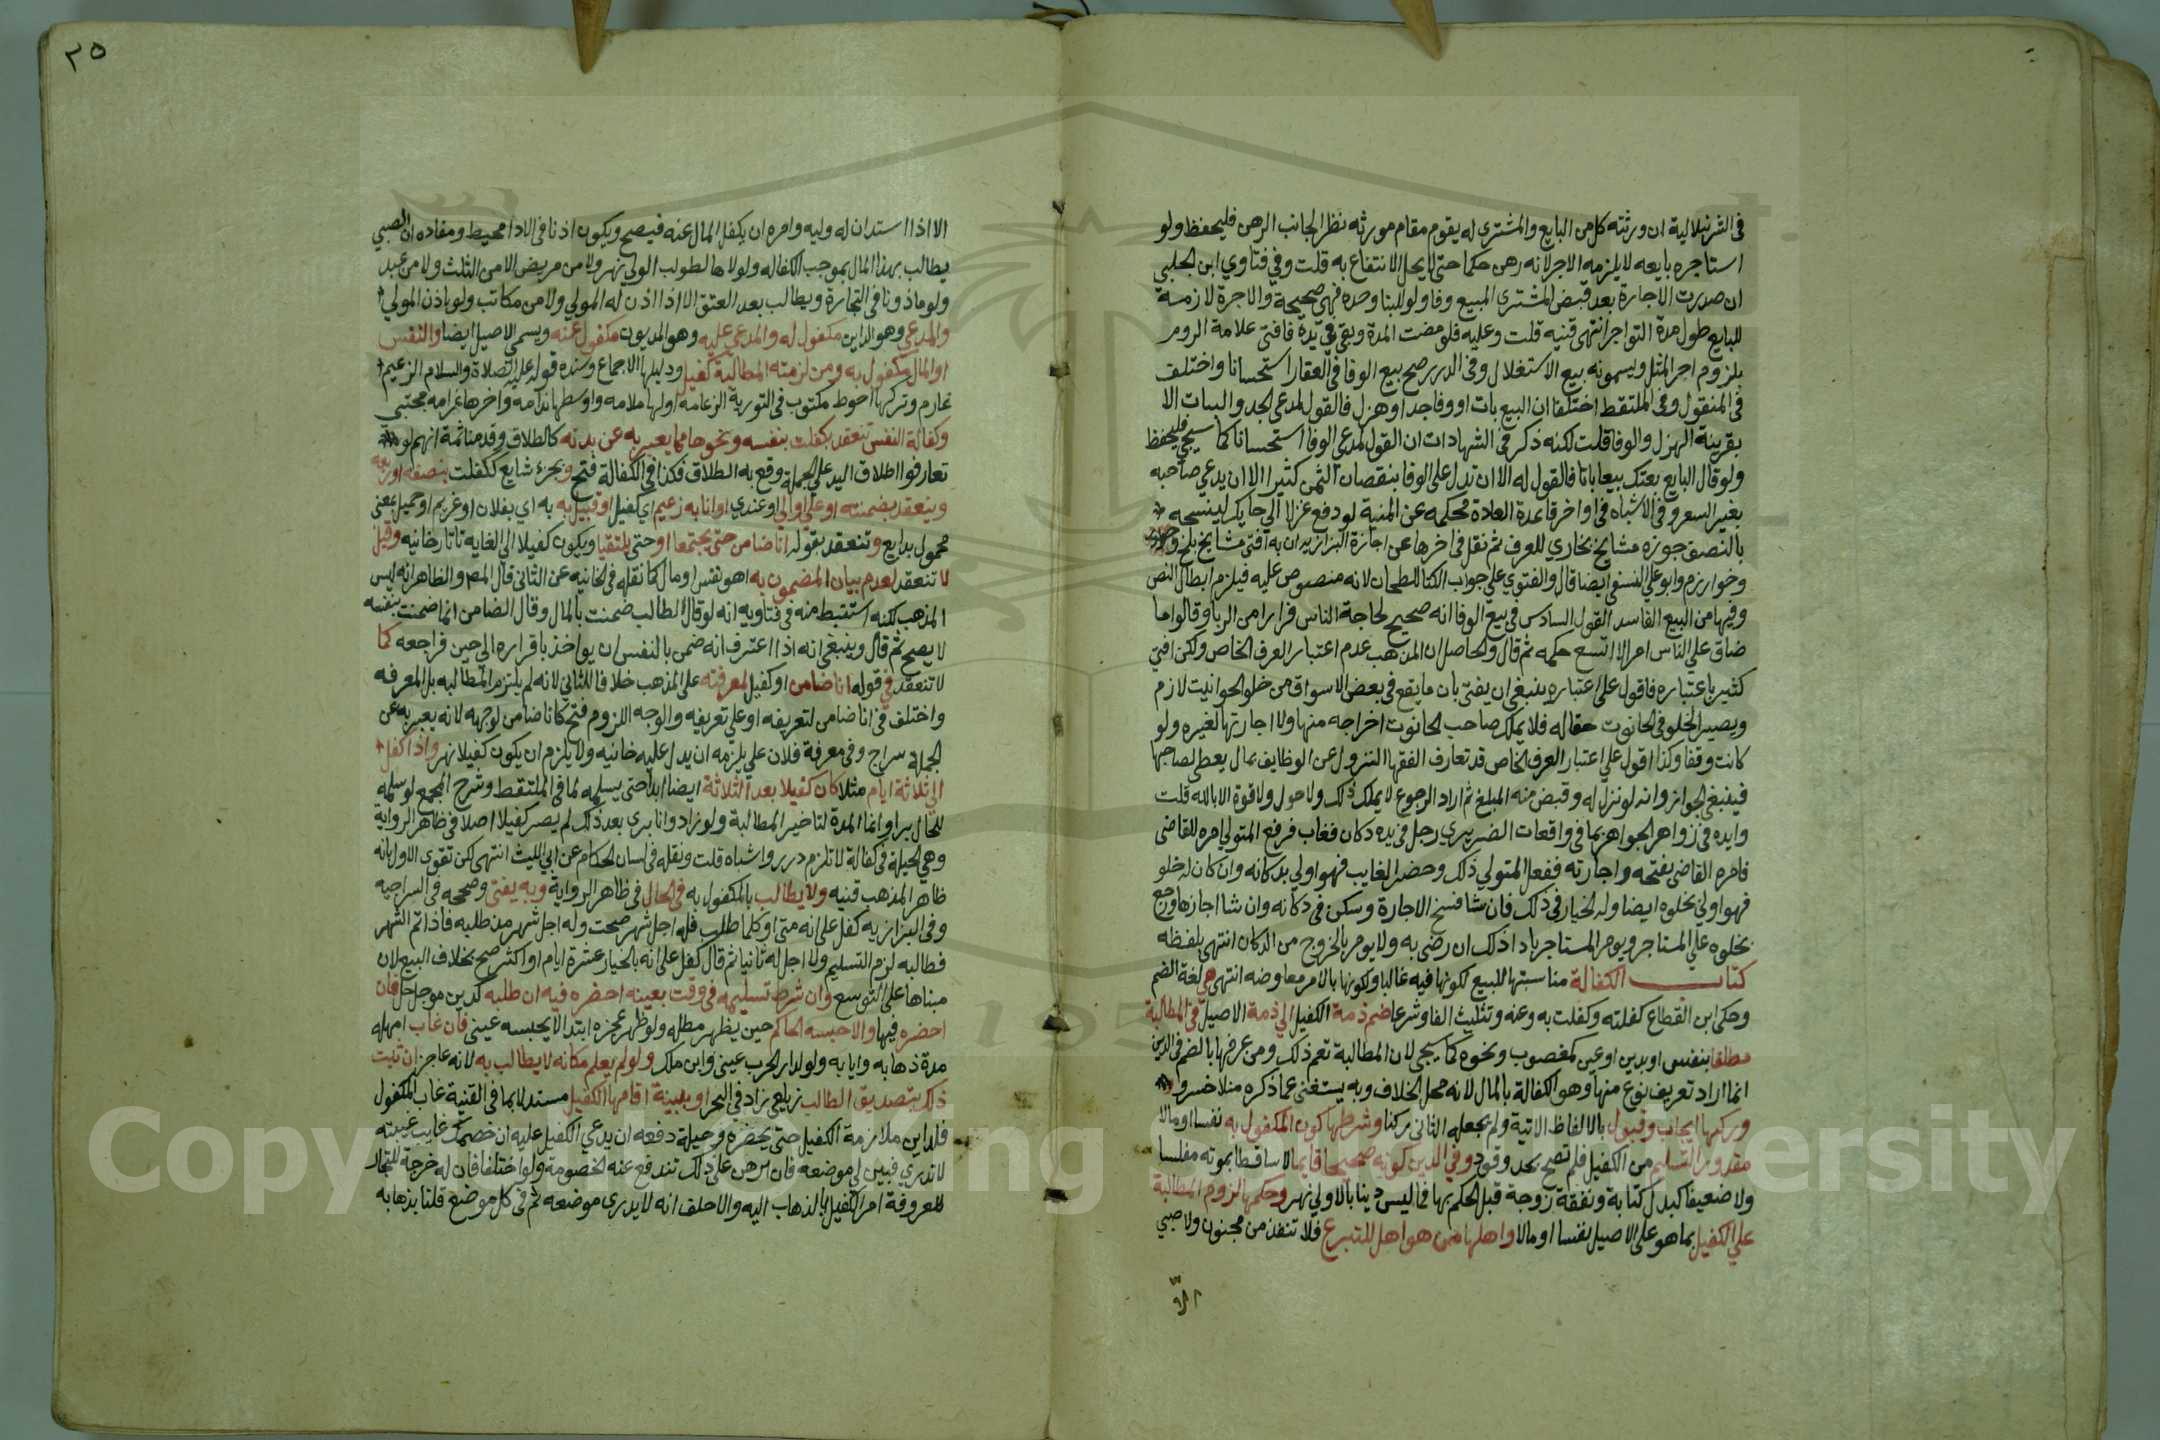 في الشرنبلالية ان ورثته كل من البايع والمشتري له يقوم مقام مورثه نظرا لجانب الرهن فليحفظ ولو
استاجره بايعه لا يلزمه الاجر لانه رهن حكما حتى لا يحل الانتفاع به قلت وفي فتاوي ابن الجلبي
ان صدرت الاجارة بعد قبض المشتري المبيع وفا ولو للبنا وحده فهي صحيحة والاجرة لازمة
للبايع طول مدة التواجر انتهى فتنبه قلت وعليه فلو مضت المدة وبقي في يده فافتى علامة الروم
بلزوم اجر المثل ويسمونه بيع الاستغلال وفي الدرر صح بيع الوفا في العقار استحسانا واختلف
في المنقول وفي الملتقط اختلفا ان البيع بات او وفا جد او هزل فالقول لمدعي الجد والبتات الا
بقرينة الهزل والوفا قلت لكنه ذكر في الشهادات ان القول لمدعي الوفا استحسانا كما سيجي فليحفظ
ولو قال البايع بعتك بيعا باتا فالقول له الا ان يدل على الوفا بنقصان الثمن كثيرا الا ان يدعي صاحبه
بغير السعر وفي الاشباه في اواخر قاعدة العادة محكمه عن المنية لو دفع غزلا الي حايك لينسجه
بالنصف جوزه مشايخ بخاري للعرف ثم نقل في اخرها عن اجازة البزازيه ان به افتى مشايخ بلخ
وخوارزم وابو علي النسفي ايضا قال والفتوي علي جواب الكتاب للطحان لانه منصوص عليه فيلزم ابطال النص
وفيها من البيع الفاسد القول السادس في بيع الوفا انه صحيح لحاجة الناس فرارا من الربا وقالوا ما
ضاق علي الناس امر الا اتسع حكمه ثم قال والحاصل ان المذهب عدم اعتبار العرف الخاص ولكن افتي
كثير باعتباره فاقول علي اعتباره ينبغي ان يفتى بان ما يقع في بعض الاسواق من خلو الحوانيت لازم
ويصير الخلو في الحانوت حقا له فلا يملك صاحب الحانوت اخراجه منها ولا اجارتها لغيره ولو
كانت وقفا وكذا اقول علي اعتبار العرف الخاص قد تعارف الفقها النزول عن الوظايف بمال يعطى لصاحبها
فينبغي الجواز وانه لو نزل له وقبض منه المبلغ ثم اراد الرجوع لا يملك ذلك ولا حول ولا قوة الا بالله قلت
وايده في زواهر الجواهر بما في واقعات الضريري رجل في يده دكان فغاب فرفع المتولي امره للقاضي
فامره القاضي بفتحه واجارته ففعل المتولي ذلك وحضر الغايب فهو اولي بدكانه وان كان له خلو
فهو اولي بخلوه ايضا وله الخيار في ذلك فان شا فسخ الاجارة وسكن في دكانه وان شا اجازها ورجع
بخلوه علي المستاجر ويومر المستاجر باداذلك ان رضي به ولا يومر بالخروج من الدكان انتهى بلفظه
كتاب الكفالة مناسبتها للبيع لكونها فيه غالبا ولكونها بالامر معاوضه انتهى هي لغة الضم
وحكى ابن القطاع كفلته وكفلت به وعنه وتثليث الفا وشرعا ضم ذمة الكفيل الي ذمة الاصيل في المطالبة
مطلقا بنفس او بدين او عين كمغصوب ونحوه كما سيجي لان المطالبة تعم ذلك ومن عرفها بالضم في الدين
انما اراد تعريف نوع منها وهو الكفالة بالمال لانه محل الخلاف وبه يستغنى عما ذكره منلا خسرو
وركنها ايجاب وقبول بالالفاظ الاتية ولم يجعله الثاني ركنا وشرطها كون المكفول به نفسا او مالا
مقدور التسليم من الكفيل فلم تصح بحد وقود وفي الدين كونه صحيحا قايما لا ساقطا بموته مفلسا
ولا ضعيفا كبدل كتابة ونفقة زوجة قبل الحكم بها فما ليس دينا بالاولي نهر وحكمها لزوم المطالبة
علي الكفيل بما هو على الاصيل نفسا او مالا واهلها من هو اهل للتبرع فلا تنفذ من مجنون ولا صبي
الا
٢٥
الا اذا استدان له وليه وامره ان يكفل المال عنه فيصح ويكون اذنا في الادا محيط ومفاده ان الصبي
يطالب بهذا المال بموجب الكفاله ولولاها لطولب الولي نهر ولا من مريض الا من الثلث ولا من عبد
ولو ماذونا في التجارة ويطالب بعد العتق الا اذا اذن له المولي ولا من مكاتب ولو باذن المولي
والمدعي وهو الداين مكفول له والمدعى عليه وهو المديون مكفول عنه ويسمى الاصيل ايضا والنفس
او المال مكفول به ومن لزمته المطالبة كفيل ودليلها الاجماع وسنده قوله عليه الصلاة والسلام الزعيم
غارم وتركها احوط مكتوب في التورية الزعامه اولها ملامه واوسطها ندامه واخرها غرامه مجتبي
وكفالة النفس تنعقد بكفلت بنفسه ونحوها مما يعبر به عن بدنه كالطلاق وقدمنا ثمة انهم لو
تعارفوا اطلاق اليد علي الجملة وقع به الطلاق فكذا في الكفالة فتح وبجزء شايع ككفلت بنصفه او ربعه
وينعقد بضمنته او علي او الي او عندي او انا به زعيم اي كفيل او قبيل به اي بفلان او غريم او حميل بمعنى
محمول بدايع وتنعقد بقوله انا ضامن حتى يجتمعا او حتى يلتقيا ويكون كفيلا الي الغايه تاتارخانيه وقيل
لا تنعقد لعدم بيان المضمون به اهو نفس او مال كما نقله في الخانيه عن الثاني قال المص والظاهر انه ليس
المذهب لكنه استنبط منه في فتاويه انه لو قال الطالب ضمنت بالمال وقال الضامن انما ضمنت بنفسه
لا يصح ثم قال وينبغي انه اذا اعترف انه ضمن بالنفس ان يواخذ باقراره الي حين فراجعه كما
لا تنعقد في قوله انا ضامن او كفيل لمعرفته على المذهب خلافا للثاني لانه لم يلتزم المطالبه بل المعرفه
واختلف في انا ضامن لتعريفه او علي تعريفه والوجه اللزوم فتح كانا ضامن لوجهه لانه يعبر به عن
الجملة سراج وفي معرفة فلان علي يلزمه ان يدل عليه خانيه ولا يلزم ان يكون كفيلا نهر واذا كفل
الي ثلاثة ايام مثلا كان كفيلا بعد الثلاثة ايضا ابدا حتى يسلمه لما في الملتقط وشرح المجمع لو سلمه
للحال برا وانما المدة لتاخير المطالبة ولو زاد وانا بري بعد ذلك لم يصر كفيلا اصلا في ظاهر الرواية
وهي الحيلة في كفالة لا تلزم درر واشباه قلت ونقله في لسان الحكام عن ابي الليث انتهى لكن تقوى الاول بانه
ظاهر المذهب فتنبه ولا يطالب بالمكفول به في الحال في ظاهر الرواية وبه يفتى وصححه في السراجيه
وفي البزازيه كفل على انه متى او كلما طلب فله اجل شهر صحت وله اجل شهر مذ طلبه فاذا تم الشهر
فطالبه لزم التسليم ولا اجل له ثانيا ثم قال كفل على انه بالخيار عشرة ايام او اكثر صح بخلاف البيع لان
مبناها على التوسع وان شرط تسليمه في وقت بعينه احضره فيه ان طلبه كدين موجل حل فان
احضره فيها والا حبسه الحاكم حين يظهر مطله ولو ظهر عجزه ابتدا لا يحبسه عيني فان غاب امهله
مدة ذهابه وايابه ولو لدار الحرب عيني وابن ملك ولو لم يعلم مكانه لا يطالب به لانه عاجز ان ثبت
ذلك بتصديق الطالب زيلعي زاد في البحر او ببينة اقامها الكفيل مستدلا بما في القنية غاب المكفول
فللداين ملازمة الكفيل حتى يحضره وحيلة دفعه ان يدعي الكفيل عليه ان خصمك غايب غيبته
لا تدري فبين لي موضعه فان برهن على ذلك تندفع عنه الخصومة ولو اختلفا فان له خرجة للتجارة
معروفة امر الكفيل بالذهاب اليه والا حلف انه لا يدري موضعه ثم في كل موضع قلنا بذهابه